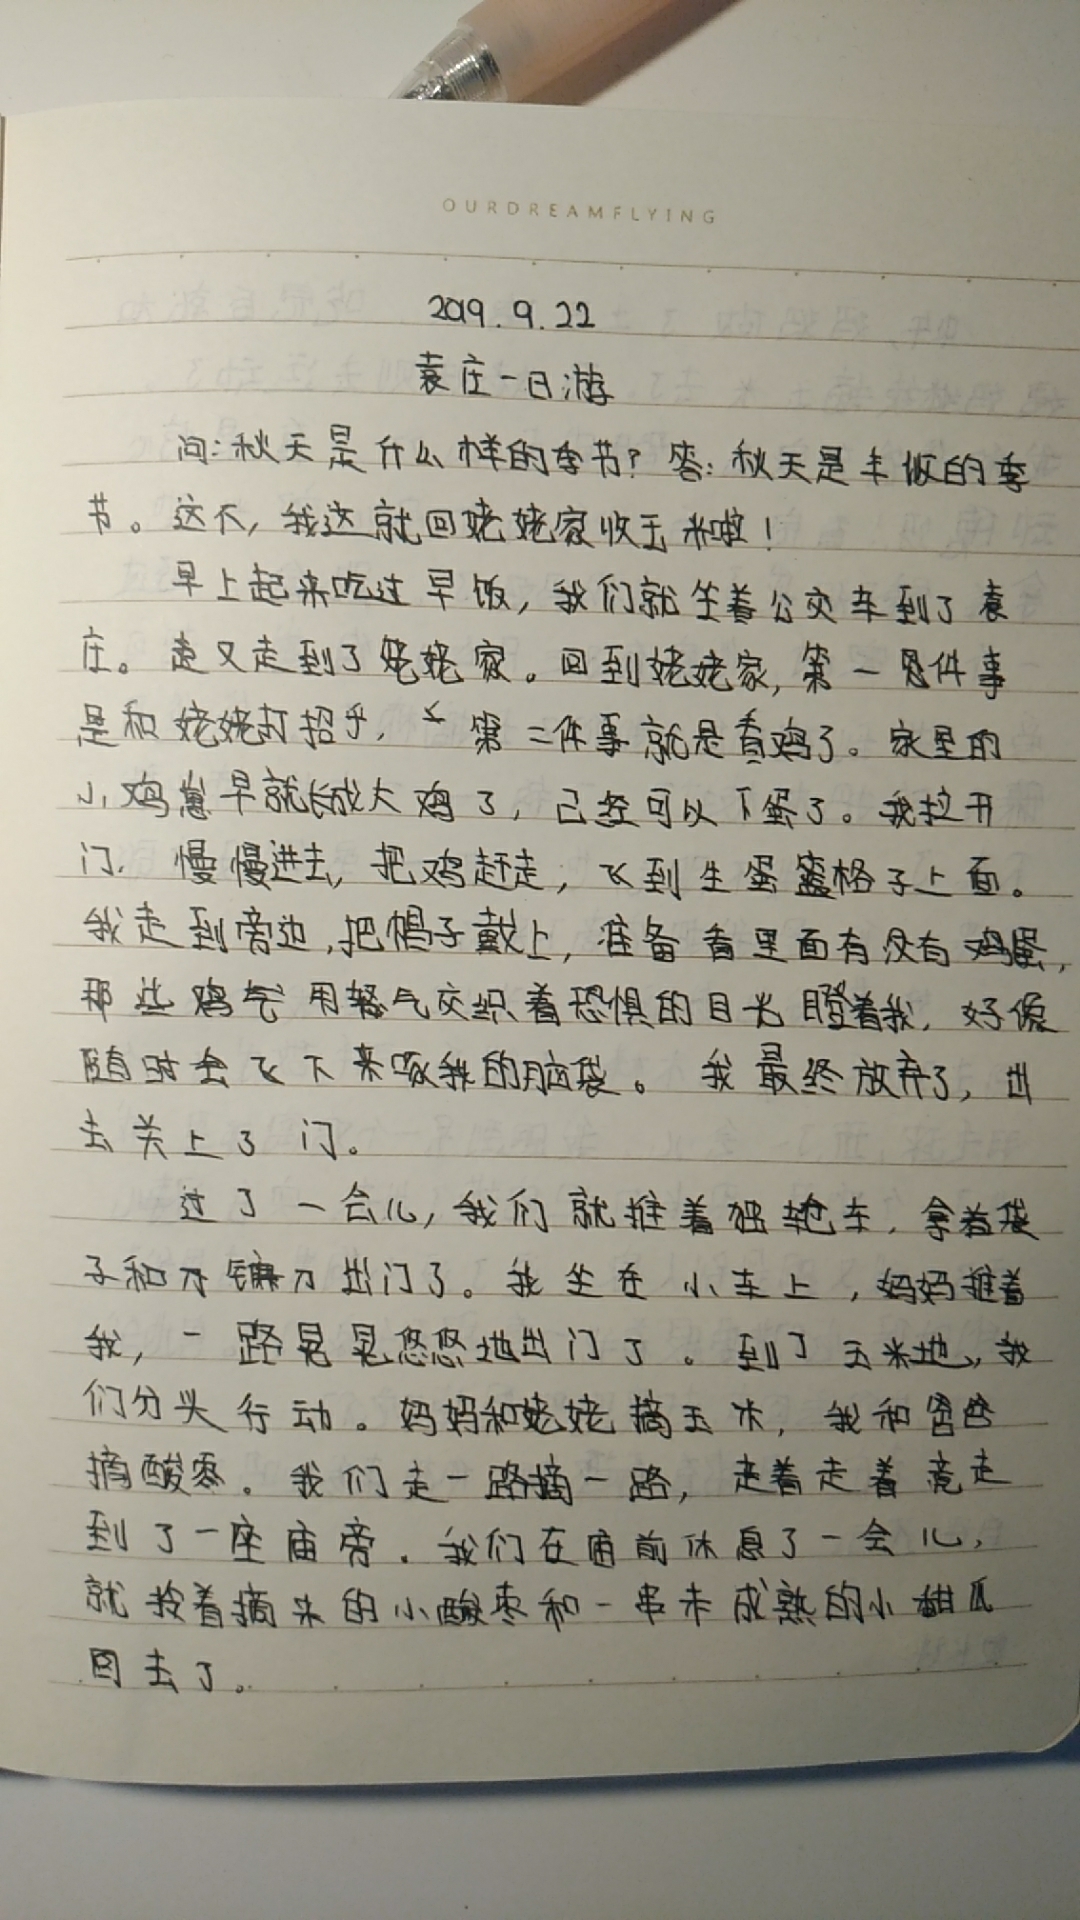 OURDREAMFLYING
2019.9.22
袁庄一日游
问:秋天是什么样的季节?答:秋天是丰收的季
节。这不,我这就回姥姥家收玉米啦!
早上起来吃过早饭,我们就坐着公交车到了袁
庄。走又走到了姥姥家。回到姥姥家,第一件事
是和姥姥打招乎,第二件事就是看鸡了。家里的
小鸡崽早就长成大鸡了,已经可以下蛋了。我拉开
门,慢慢进去,把鸡赶走,飞到生蛋篮格子上面。
我走到旁边,把帽子戴上,准备看里面有没有鸡蛋,
那些鸡气用怒气交织着恐惧的目光瞪着我,好像
随时会飞下来啄我的脑袋。我最终放弃了,出
去关上了门。
过了一会儿,我们就推着独轮车,拿着袋
子和刀镰刀出门了。我坐在小车上,妈妈推着
我,一路晃晃悠悠地出门了。到了玉米地,我
们分头行动。妈妈和姥姥摘玉米,我和爸爸
摘酸枣。我们走一路摘一路,走着走着竟走
到了一座庙旁。我们在庙前休息了一会儿,
就拎着摘来的小酸枣和一串未成熟的小甜瓜
回去了。